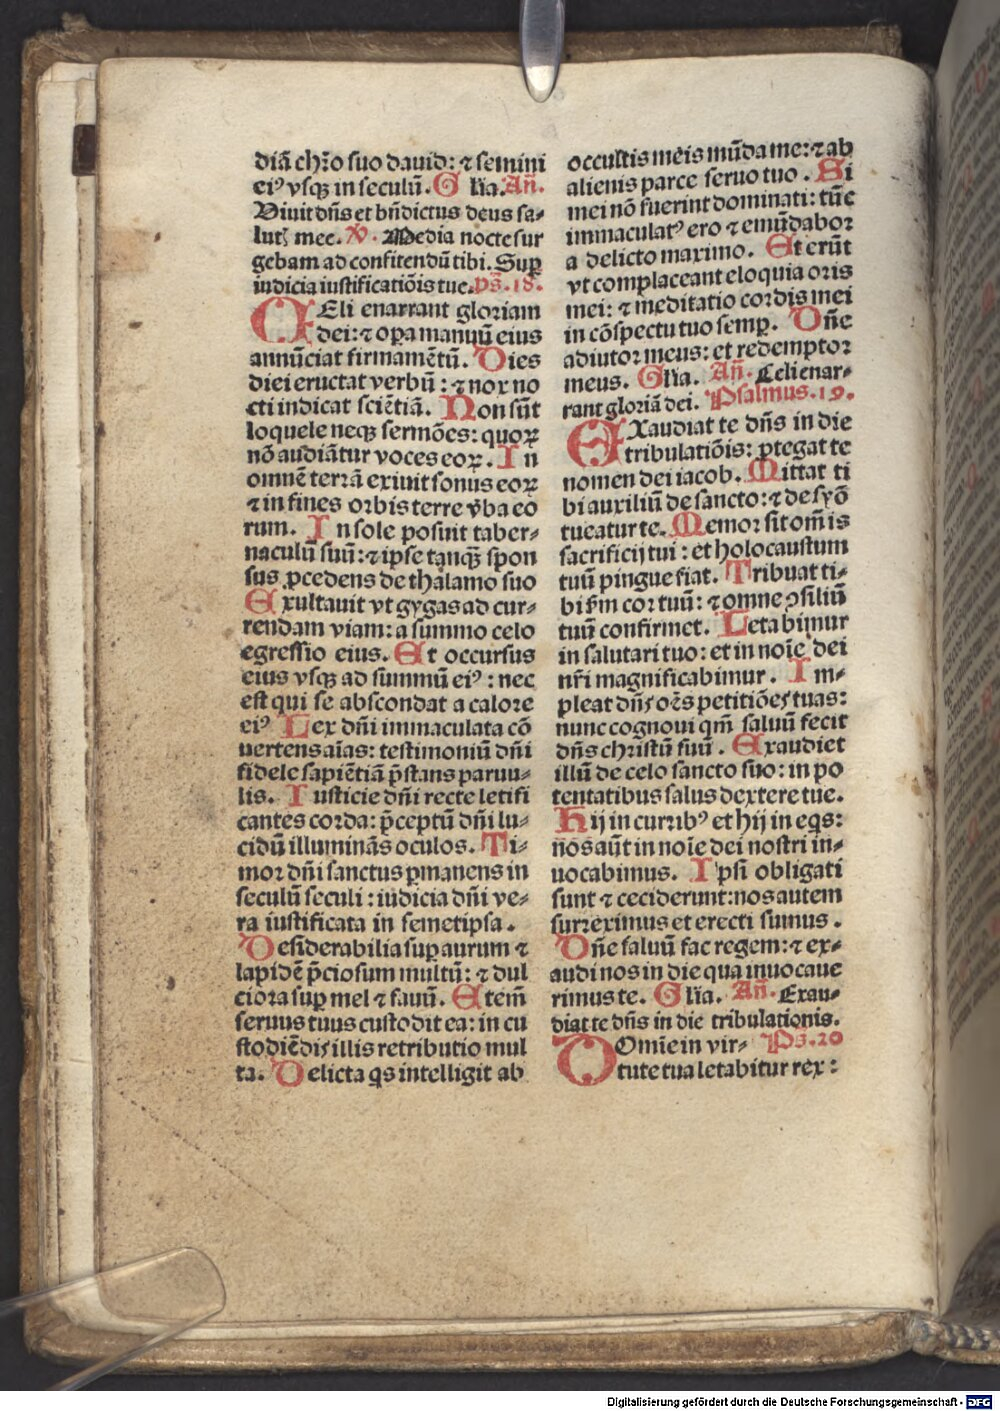 diā chr̄o suo dauid: ⁊ semini
eiꝰ vsqꝫ in seculū. Gl̄ia. Añ.
Viuit dn̄s et bn̄dictus deus sa-
lutꝭ mee. ℣. Media nocte sur
gebam ad confitendū tibi. Suꝑ
iudicia iustificatiōis tue. ps̄. 18.
CEli enarrant gloriam
dei: ⁊ oꝑa manuū eius
annūciat firmamētū. Dies
diei eructat verbū: ⁊ nox no
cti indicat sciētiā. Non sūt
loquele neqꝫ sermōes: quoꝝ
nō audiātur voces eoꝝ. In
omnē terrā exiuit sonus eoꝝ
⁊ in fines orbis terre v̄ba eo
rum. In sole posuit taber-
naculū suū: ⁊ ipse tanqꝫ̄ spon
sus ꝓcedens de thalamo suo
Exultauit vt gygas ad cur-
rendam viam: a summo celo
egressio eius. Et occursus
eius vsqꝫ ad summū eiꝰ: nec
est qui se abscondat a calore
eiꝰ Lex dn̄i immaculata cō
uertens aīas: testimoniū dn̄i
fidele sapiētiā p̄stans paruu-
lis. Iusticie dn̄i recte letifi
cantes corda: p̄ceptū dn̄i lu-
cidū illuminās oculos. Ti-
mor dn̄i sanctus ꝑmanens in
seculū seculi: iudicia dn̄i ve-
ra iustificata in semetipsa.
Desiderabilia suꝑ aurum ⁊
lapidē p̄ciosum multū: ⁊ dul
ciora suꝑ mel ⁊ fauū. Etem̄
seruus tuus custodit ea: in cu
stodiēdis illis retributio mul
ta. Delicta qs intelligit ab
occultis meis mūda me: ⁊ ab
alienis parce seruo tuo. Si
mei nō fuerint dominati: tūc
immaculatꝰ ero ⁊ emūdabor
a delicto maximo. Et erūt
vt complaceant eloquia oris
mei: ⁊ meditatio cordis mei
in cōspectu tuo semꝑ. Dn̄e
adiutor meus: et redemptor
meus. Gl̄ia. Añ. Celi enar-
rant gloriā dei. Psalmus. 19.
EXaudiat te dn̄s in die
tribulatiōis: ꝓtegat te
nomen dei iacob. Mittat ti
bi auxiliū de sancto: ⁊ de syō
tueatur te. Memor sit om̄is
sacrificij tui: et holocaustum
tuū pingue fiat. Tribuat ti-
bi ẜm cor tuū: ⁊ omne ꝯsiliū
tuū confirmet. Letabimur
in salutari tuo: et in noīe dei
nr̄i magnificabimur. Im-
pleat dn̄s oēs petitiōes tuas:
nunc cognoui qm̄ saluū fecit
dn̄s christū suū. Exaudiet
illū de celo sancto suo: in po
tentatibus salus dextere tue.
Hij in curribꝰ et hij in eqs:
nos aūt in noīe dei nostri in-
uocabimus. Ipsi obligati
sunt ⁊ ceciderunt: nos autem
surreximus et erecti sumus.
Dn̄e saluū fac regem: ⁊ ex-
audi nos in die qua inuocaue
rimus te. Gl̄ia. Añ. Exau-
diat te dn̄s in die tribulationis.
DOmīe in vir- Ps̄. 20
tute tua letabitur rex:
Digitalisierung gefördert durch die Deutsche Forschungsgemeinschaft - DFG